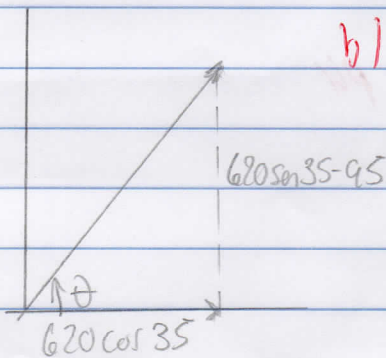 b)
620sen35-95
θ
620cos 35